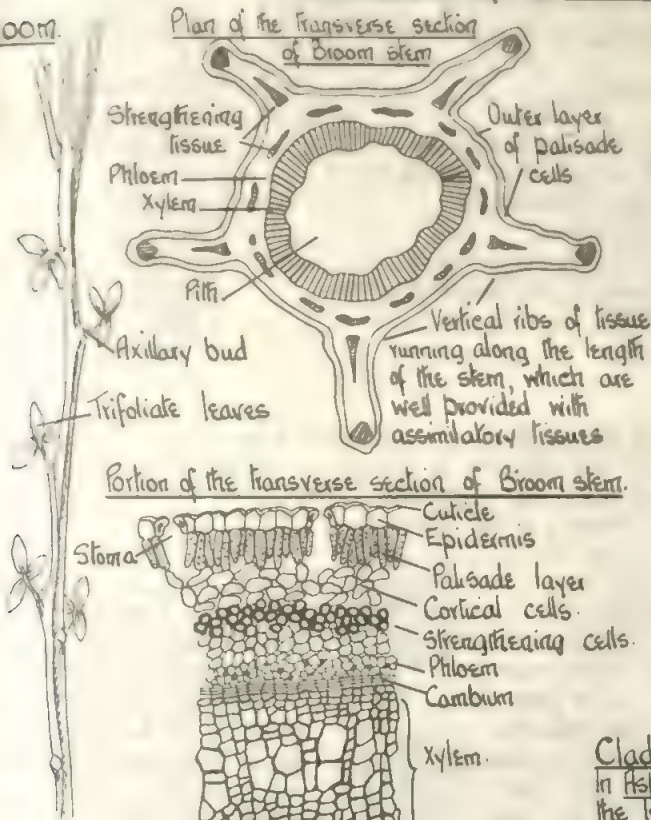 OOM.
Plan of the transverse section
of Broom stem
Strengthening
tissue
Phloem
Xylem
Pith
Outer layer
of palisade
cells
Vertical ribs of tissue
running along the length
of the stem, which are
well provided with
assimilatory tissues
Axillary bud
Trifoliate leaves
Portion of the transverse section of Broom stem.
Stoma
Cuticle
Epidermis
Palisade layer
Cortical cells.
Strengthening cells.
Phloem
Cambium
Xylem.
Clad
in
the